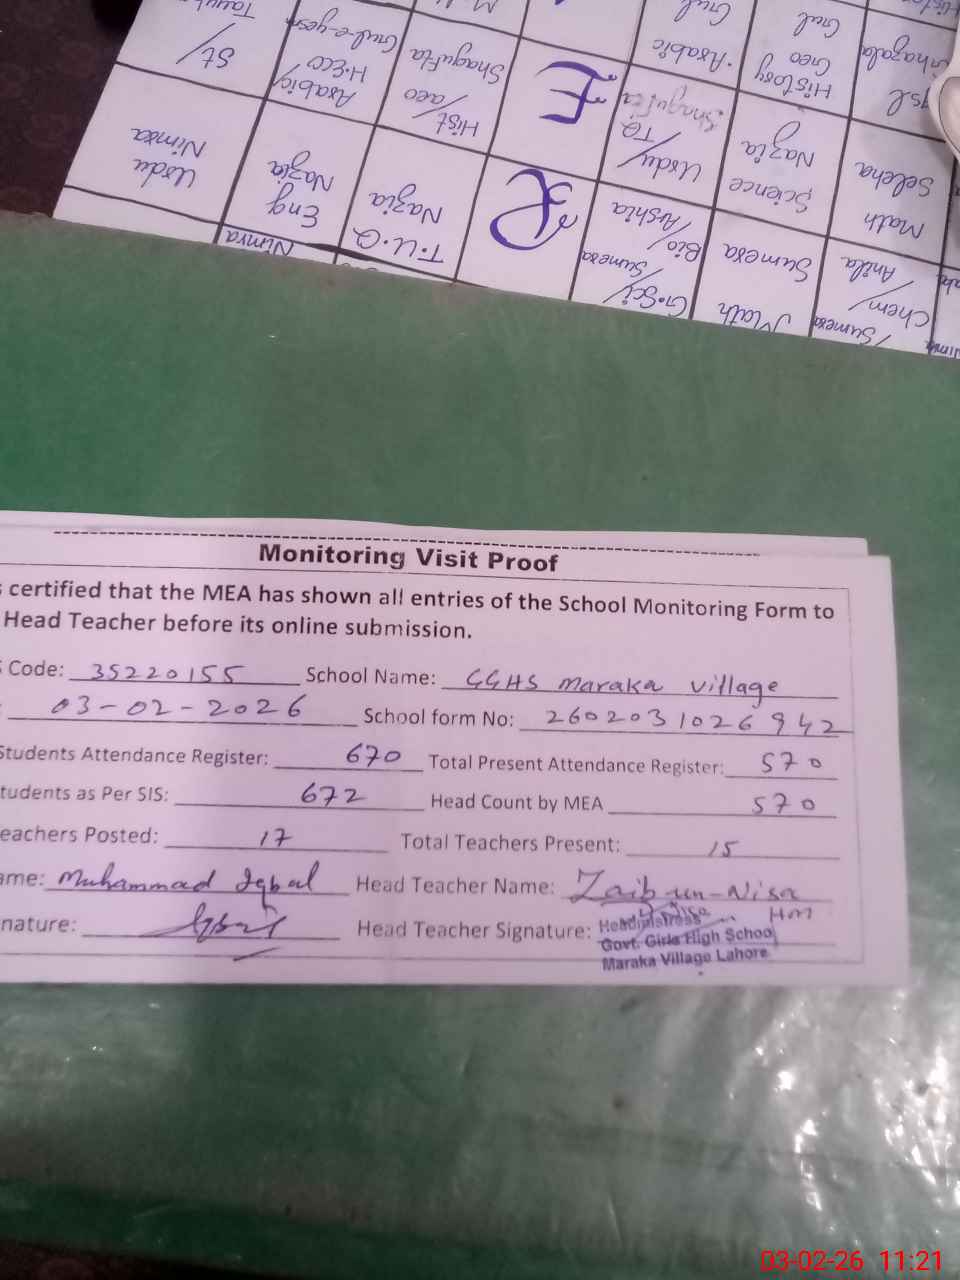 Tayyba
St/
Gul-e-yesn
H.Eco
Arabic/
Shagufta
Hist/Geo
E
Gul
Arabic
Shagufta
Urdu/TQ
Gul
Geo
History
Nazia
Science
Ghazala
Saleha
Math
Nimra
Urdu
Nazia
Eng
Nazia
T.U.Q
R
Arshia
Bio/
Sumera
G.Sci/
Sumera
Math
Anila
Chem/
Sumera/
Nimra
Monitoring Visit Proof
certified that the MEA has shown all entries of the School Monitoring Form to
Head Teacher before its online submission.
Code: 35220155 School Name: GGHS Maraka Village
03-02-2026 School form No: 2602031026942
Students Attendance Register: 670 Total Present Attendance Register: 570
tudents as Per SIS: 672 Head Count by MEA 570
eachers Posted: 17 Total Teachers Present: 15
ame: Muhammad Iqbal Head Teacher Name: Zaib un-Nisa
nature: Iqbal Head Teacher Signature: HM
Headmistress
Govt. Girls High School
Maraka Village Lahore
03-02-26 11:21